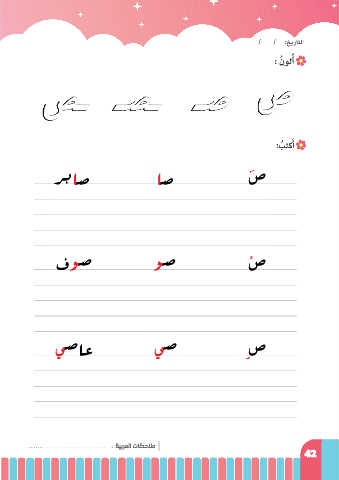 التاريخ: / /
أُلَونُ :
ص ـصـ صـ ـص
أَكتبُ:
صَ صا صابر
صُ صو صوف
صِ صي عاصي
ملاحظات المربية : ......
42